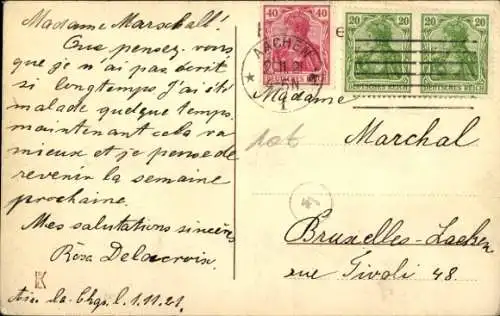 Madame Marschall!
Que pensez vous
que je n'ai pas écrit
si longtemps J'ai été
malade quelque temps.
maintenant cela va
mieux et je pense de
revenir la semaine
prochaine.
Mes salutations sincères
Rosa Delacroix.
la 1.11.21.
K
40 40
DEUTSCHES REICH
AACHEN
11.21
1
20 20
DEUTSCHES REICH
20 20
DEUTSCHES REICH
Madame
Marchal
Bruxelles-Laeken
rue Tivoli 48.